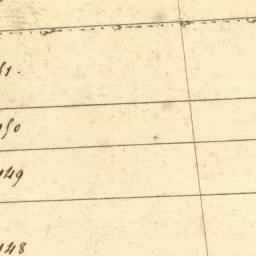 51.
150
149
148